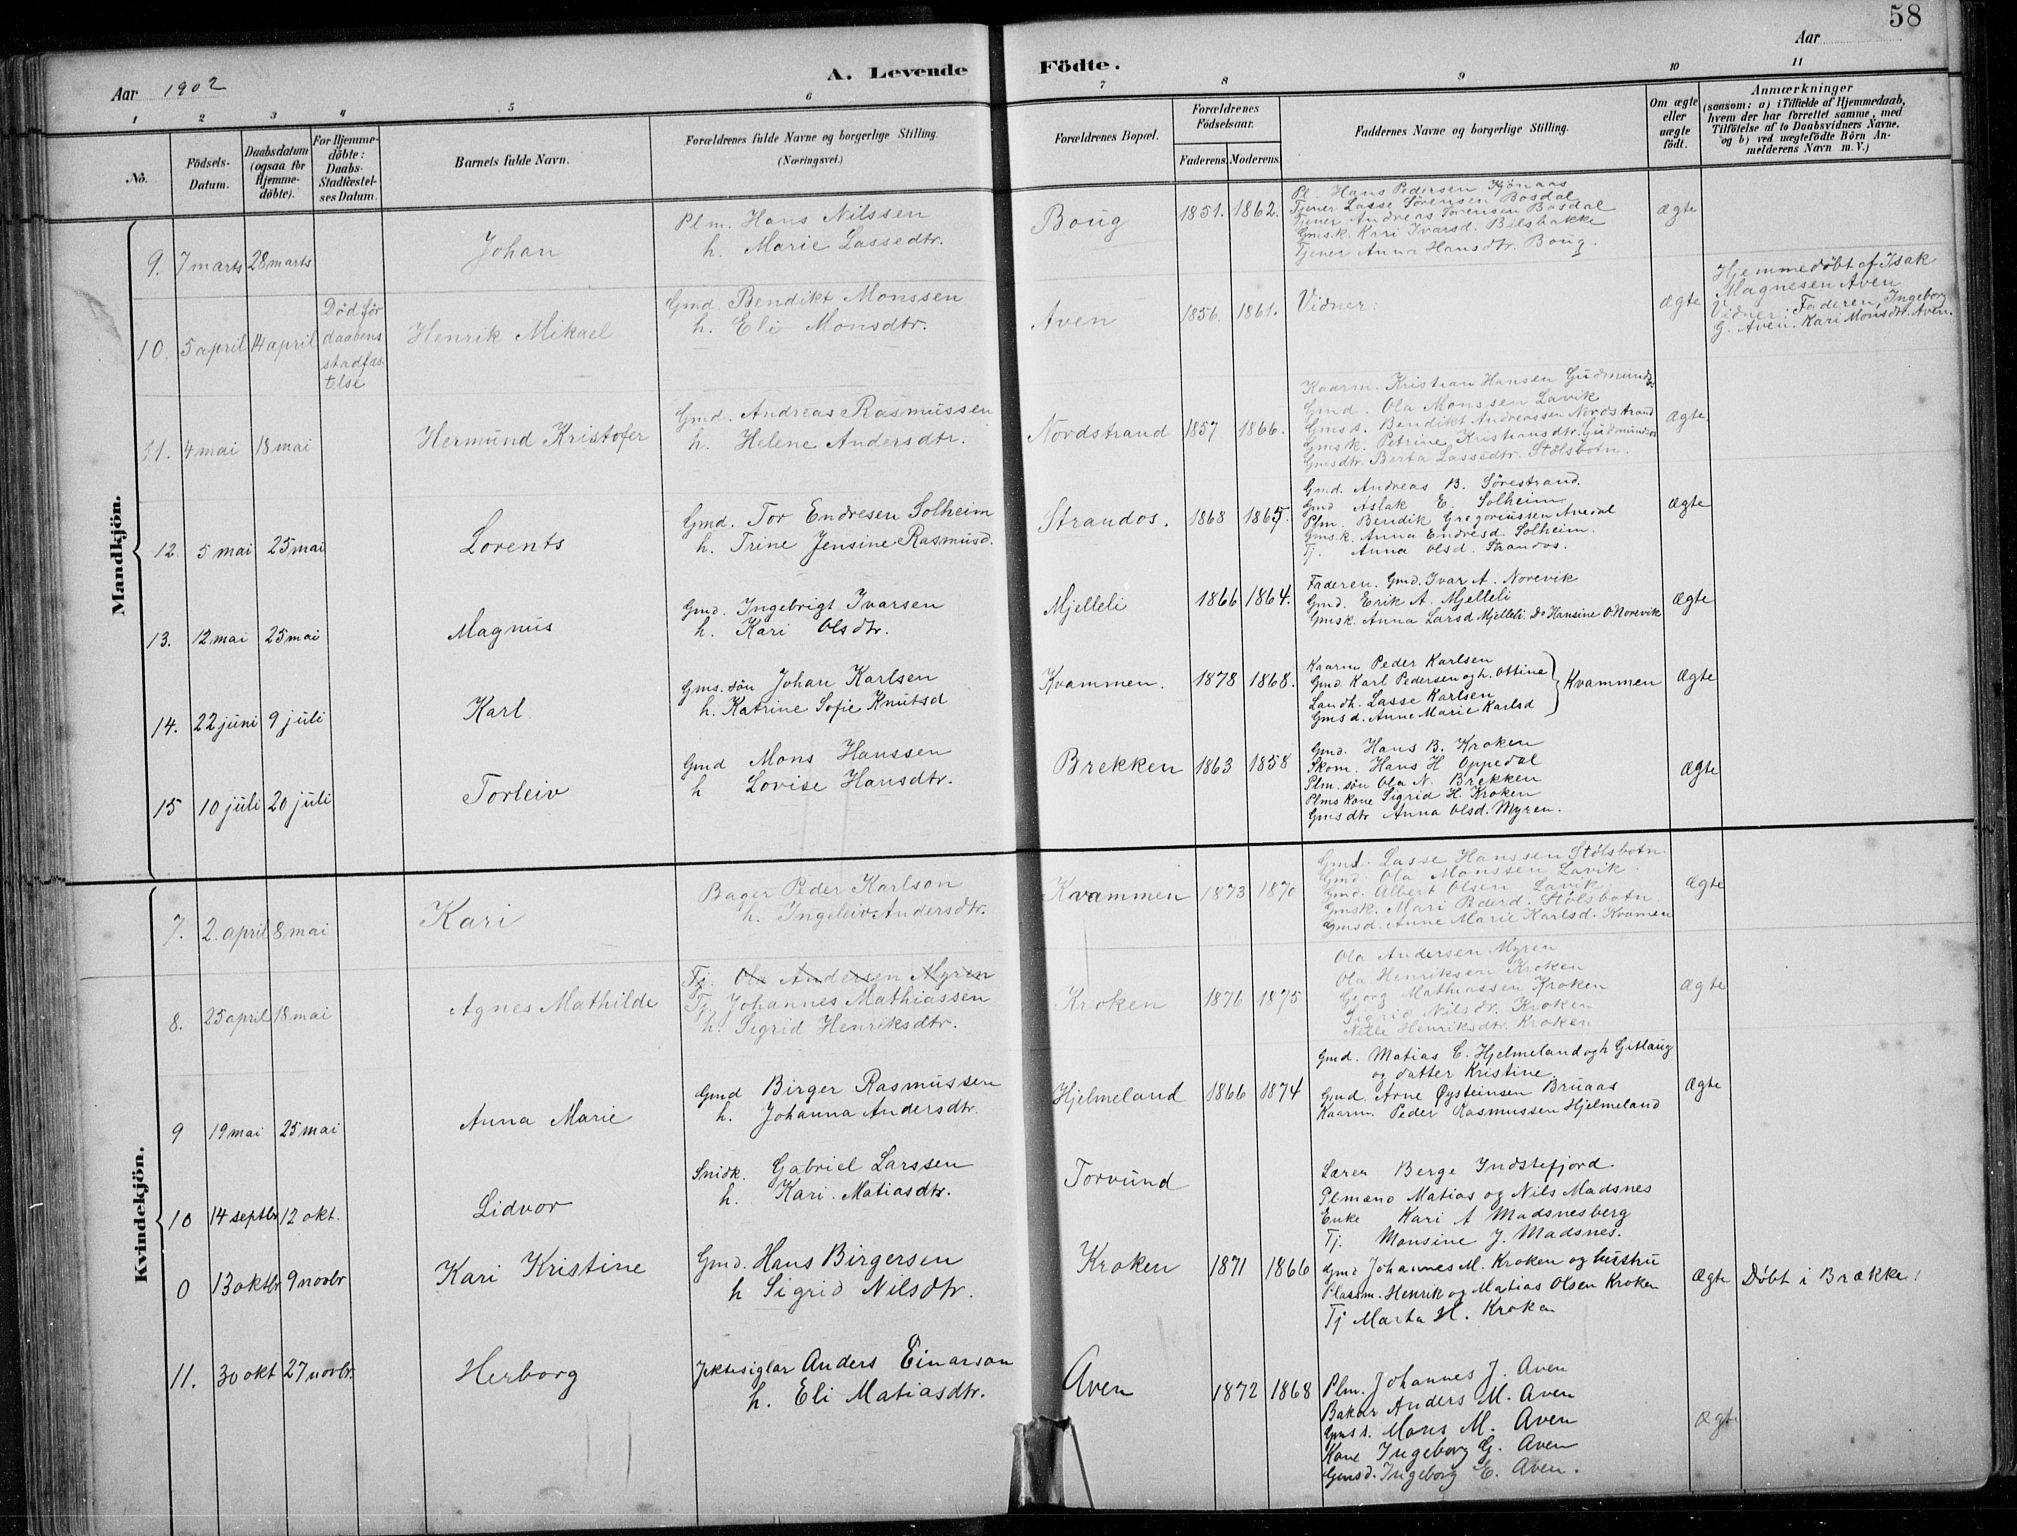 58
Aar 1902
A. Levende Födte.
Aar
1 2 3 4 5 6 7 8 9 10 11
No.
Födsels-Datum.
Daabsdatum (ogsaa for Hjemmedöbte).
For Hjemmedöbte: Daabs-Stadfæstelses Datum.
Barnets fulde Navn.
Forældrenes fulde Navne og borgerlige Stilling. (Næringsvei.)
Forældrenes Bopæl.
Forældrenes Födselsaar.
Faderens. Moderens.
Faddernes Navne og borgerlige Stilling.
Om ægte eller uægte födt.
Anmærkninger
(saasom: a) i Tilfælde af Hjemmedaab, hvem der har forrettet samme, med Tilföielse af to Daabsvidners Navne, og b) ved uægtefödte Börn Anmelderens Navn m. V.)
Mandkjön.
9. 7 marts 28 marts
Johan
Plm. Hans Nilssen
h. Marie Lassedtr.
Boug 1851. 1862.
Pl. Hans Pedersen Kjönaas
Tjener Lasse Sørensen Bosdal
Tjener Andreas Sørensen Bosdal
Gmsk. Kari Ivarsd. Bilsbakke
Tjener Anna Hansdtr. Boug.
Ægte
10. 5 april 14 april
Død før daabens stadfæstelse
Henrik Mikael
Gmd. Bendikt Monssen
h. Eli Monsdtr.
Aven 1856. 1861.
Vidner:
Ægte
Hjemmedøbt af Isak
Magnesen Aven
Vidner: Faderen, Ingeborg
G. Aven, Kari Monsdtr. Aven.
11. 4 mai 18 mai
Hermund Kristofer
Gmd. Andreas Rasmussen
h. Helene Andersdtr.
Nordstrand 1857 1866.
Kaarm. Kristian Hansen Gudmunds
Gmd. Ola Monssen Lavik
Gmss. Bendikt Andreassen Nordstrand
Gmsk. Petrine Kristiansdtr. Gudmunds
Gmsdtr. Berta Lassedtr. Stølsbotn.
Ægte
12. 5 mai 25 mai
Lorents
Gmd. Tor Endresen Solheim
h. Trine Jensine Rasmusd.
Strandos. 1868 1865.
Gmd. Andreas B. Sørestrand.
Gmd Aslak E. Solheim
Plm. Bendik Gregoriussen Avedal
Gmsk. Anna Endresd. Solheim.
Tj. Anna Olsd. Strandos.
Ægte
13. 12 mai 25 mai
Magnus
Gmd. Ingebrigt Ivarsen
h. Kari Olsdtr.
Mjelleli 1866 1864.
Faderen. Gmd. Ivar A. Norevik
Gmd. Erik A. Mjelleli
Gmsk. Anna Larsd Mjelleli. Do Hansine O. Norevik
Ægte
14. 22 juni 9 juli
Karl
Gms. søn Johan Karlsen
h. Katrine Sofie Knutsd
Kvammen. 1878 1868.
Kaarm Peder Karlsen
Gmd Karl Pedersen og h. Ottine
Landh. Lasse Karlsen
Gmsd. Anne Marie Karlsd
Kvammen
Ægte
15 10 juli 20 juli
Torleiv
Gmd Mons Hanssen
h Lovise Hansdtr.
Brekken 1863 1858
Gmd. Hans B. Kroken
Skom. Hans H Oppedal
Plm. søn Ola N. Brekken
Plms kone Sigrid H. Kroken
Gmsdtr Anna Olsd. Myren.
Ægte
Kvindekjön.
7. 2. april 8 mai
Kari
Bager Peder Karlson
h. Ingeleiv Andersdtr.
Kvammen 1873 1870
Gmd. Lasse Hanssen Stølsbotn
Gmd. Ola Monssen Lavik.
Gmd. Albert Olsen Lavik
Gmsk. Mari Pderd. Stølsbotn
Gmsd. Anne Marie Karlsd. Kvamen
Ægte
8. 25 april 18 mai
Agnes Mathilde
Tj. Ola Andersen Myren
Tj. Johannes Mathiassen
h. Sigrid Henriksdtr.
Kroken 1876 1875
Ola Andersen Myren
Ola Henriksen Kroken
Georg Mathiassen Kroken
Sigrid Nilsdtr. Kroken
Nille Henriksdtr. Kroken
Ægte
9 19 mai 25 mai
Anna Marie
Gmd Birger Rasmussen
h. Johanna Andersdtr.
Hjelmeland 1866 1874
Gmd. Matias C. Hjelmeland og h Gitlaug
og datter Kristine
Gmd. Arne Øysteinsen Bruaas
Kaarm. Peder Rasmussen Hjelmeland
Ægte
10 14 septbr 12 okt.
Lidvor
Snidk. Gabriel Larssen
h. Kari Matiasdtr.
Torvund
Lærer Berge Indstefjord.
Plmænd Matias og Nils Madsnes
Enke Kari A Madsnesberg
Tj. Monsine J. Madsnes.
0 13 oktbr 9 novbr
Kari Kristine
Gmd. Hans Birgersen
h Sigrid Nilsdtr.
Kroken 1871 1866
Gmd Johannes M. Kroken og hustru
Plassm. Henrik og Matias Olsen Kroken
Tj Marta H. Kroken
Ægte
Døbt i Brække!
11. 30 okt 27 novbr.
Herborg
Jektesiglar Anders Einarson
h. Eli Matiasdtr.
Aven 1872 1868
Plm. Johannes J. Aven
Bakar Anders M. Aven
Gmss. Mons M. Aven
Kone Ingeborg G. Aven
Gmsd. Ingeborg E. Aven.
Ægte